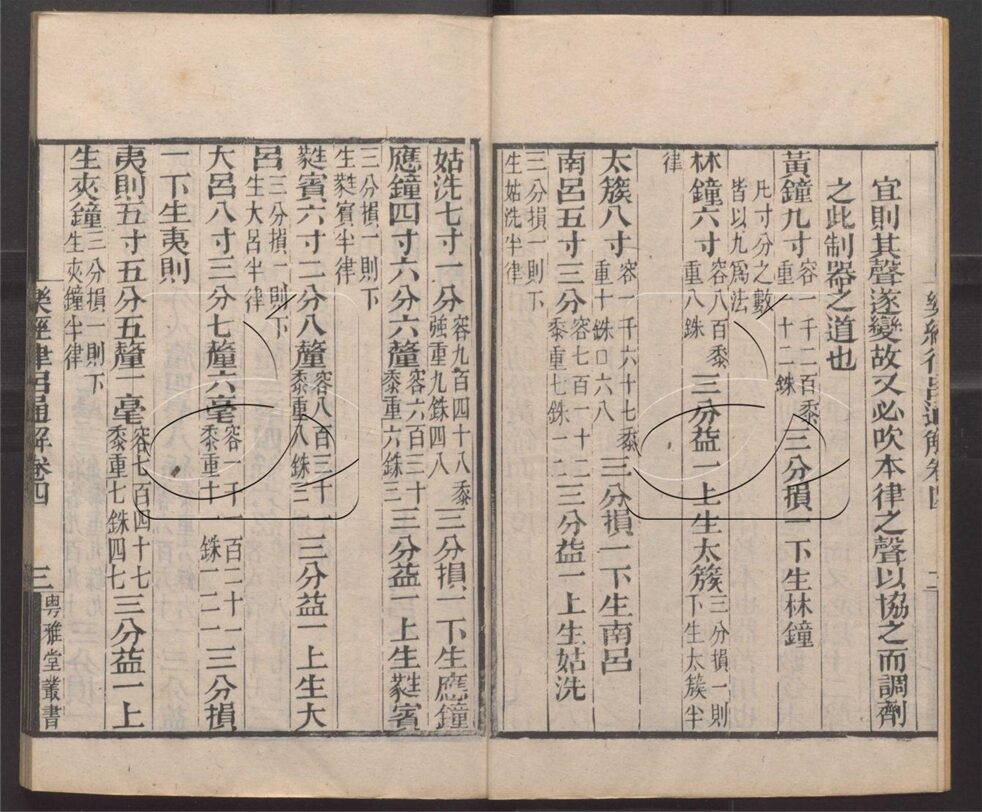 宜則其聲遂變故又必吹本律之聲以協之而調劑
之此制器之道也
黃鐘九寸容一千二百黍重一十二銖三分損一下生林鐘
凡寸分之數皆以九爲法
林鐘六寸容八百黍重八銖三分益一上生太簇三分損一則下生太簇半
律
太簇八寸容一千六十七黍重十銖口六八三分損一下生南呂
南呂五寸三分容七百一十二黍重七銖一二三分益一上生姑洗
三分損一則下生姑洗半律
姑洗七寸一分容九百四十八黍強重九銖四八三分損一下生應鐘
應鐘四寸六分六釐容六百三十黍重六銖三三分益一上生蕤賓
三分損一則下生蕤賓半律
蕤賓六寸二分八釐容八百三十黍重八銖三三分益一上生大
呂三分損一則下生大呂半律
大呂八寸三分七釐六毫容一千一百二十一黍重十一銖二一三分損
一下生夷則
夷則五寸五分五釐一毫容七百四十七黍重七銖四七三分益一上
生夾鐘三分損一則下生夾鐘半律
樂經律呂通解卷四
三
粵雅堂叢書